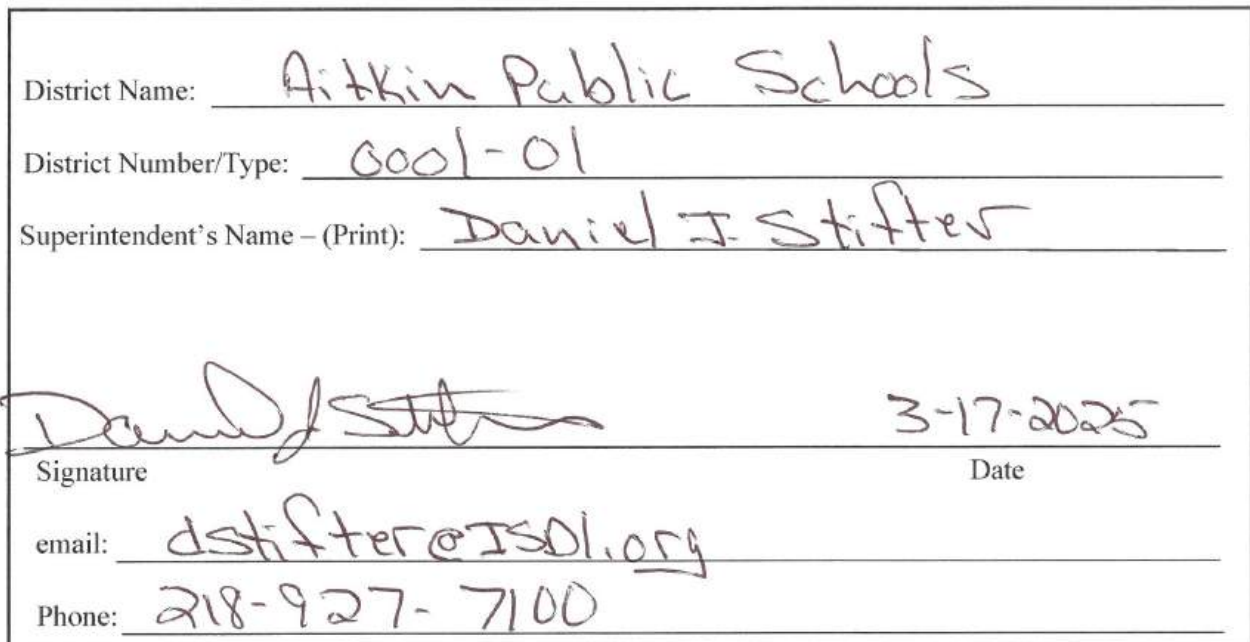 District Name: Aitkin Public Schools
District Number/Type: 0001-01
Superintendent's Name – (Print): Daniel J. Stifter
Daniel J Stifter 3-17-2025
Signature Date
email: dstifter@ISD1.org
Phone: 218-927-7100